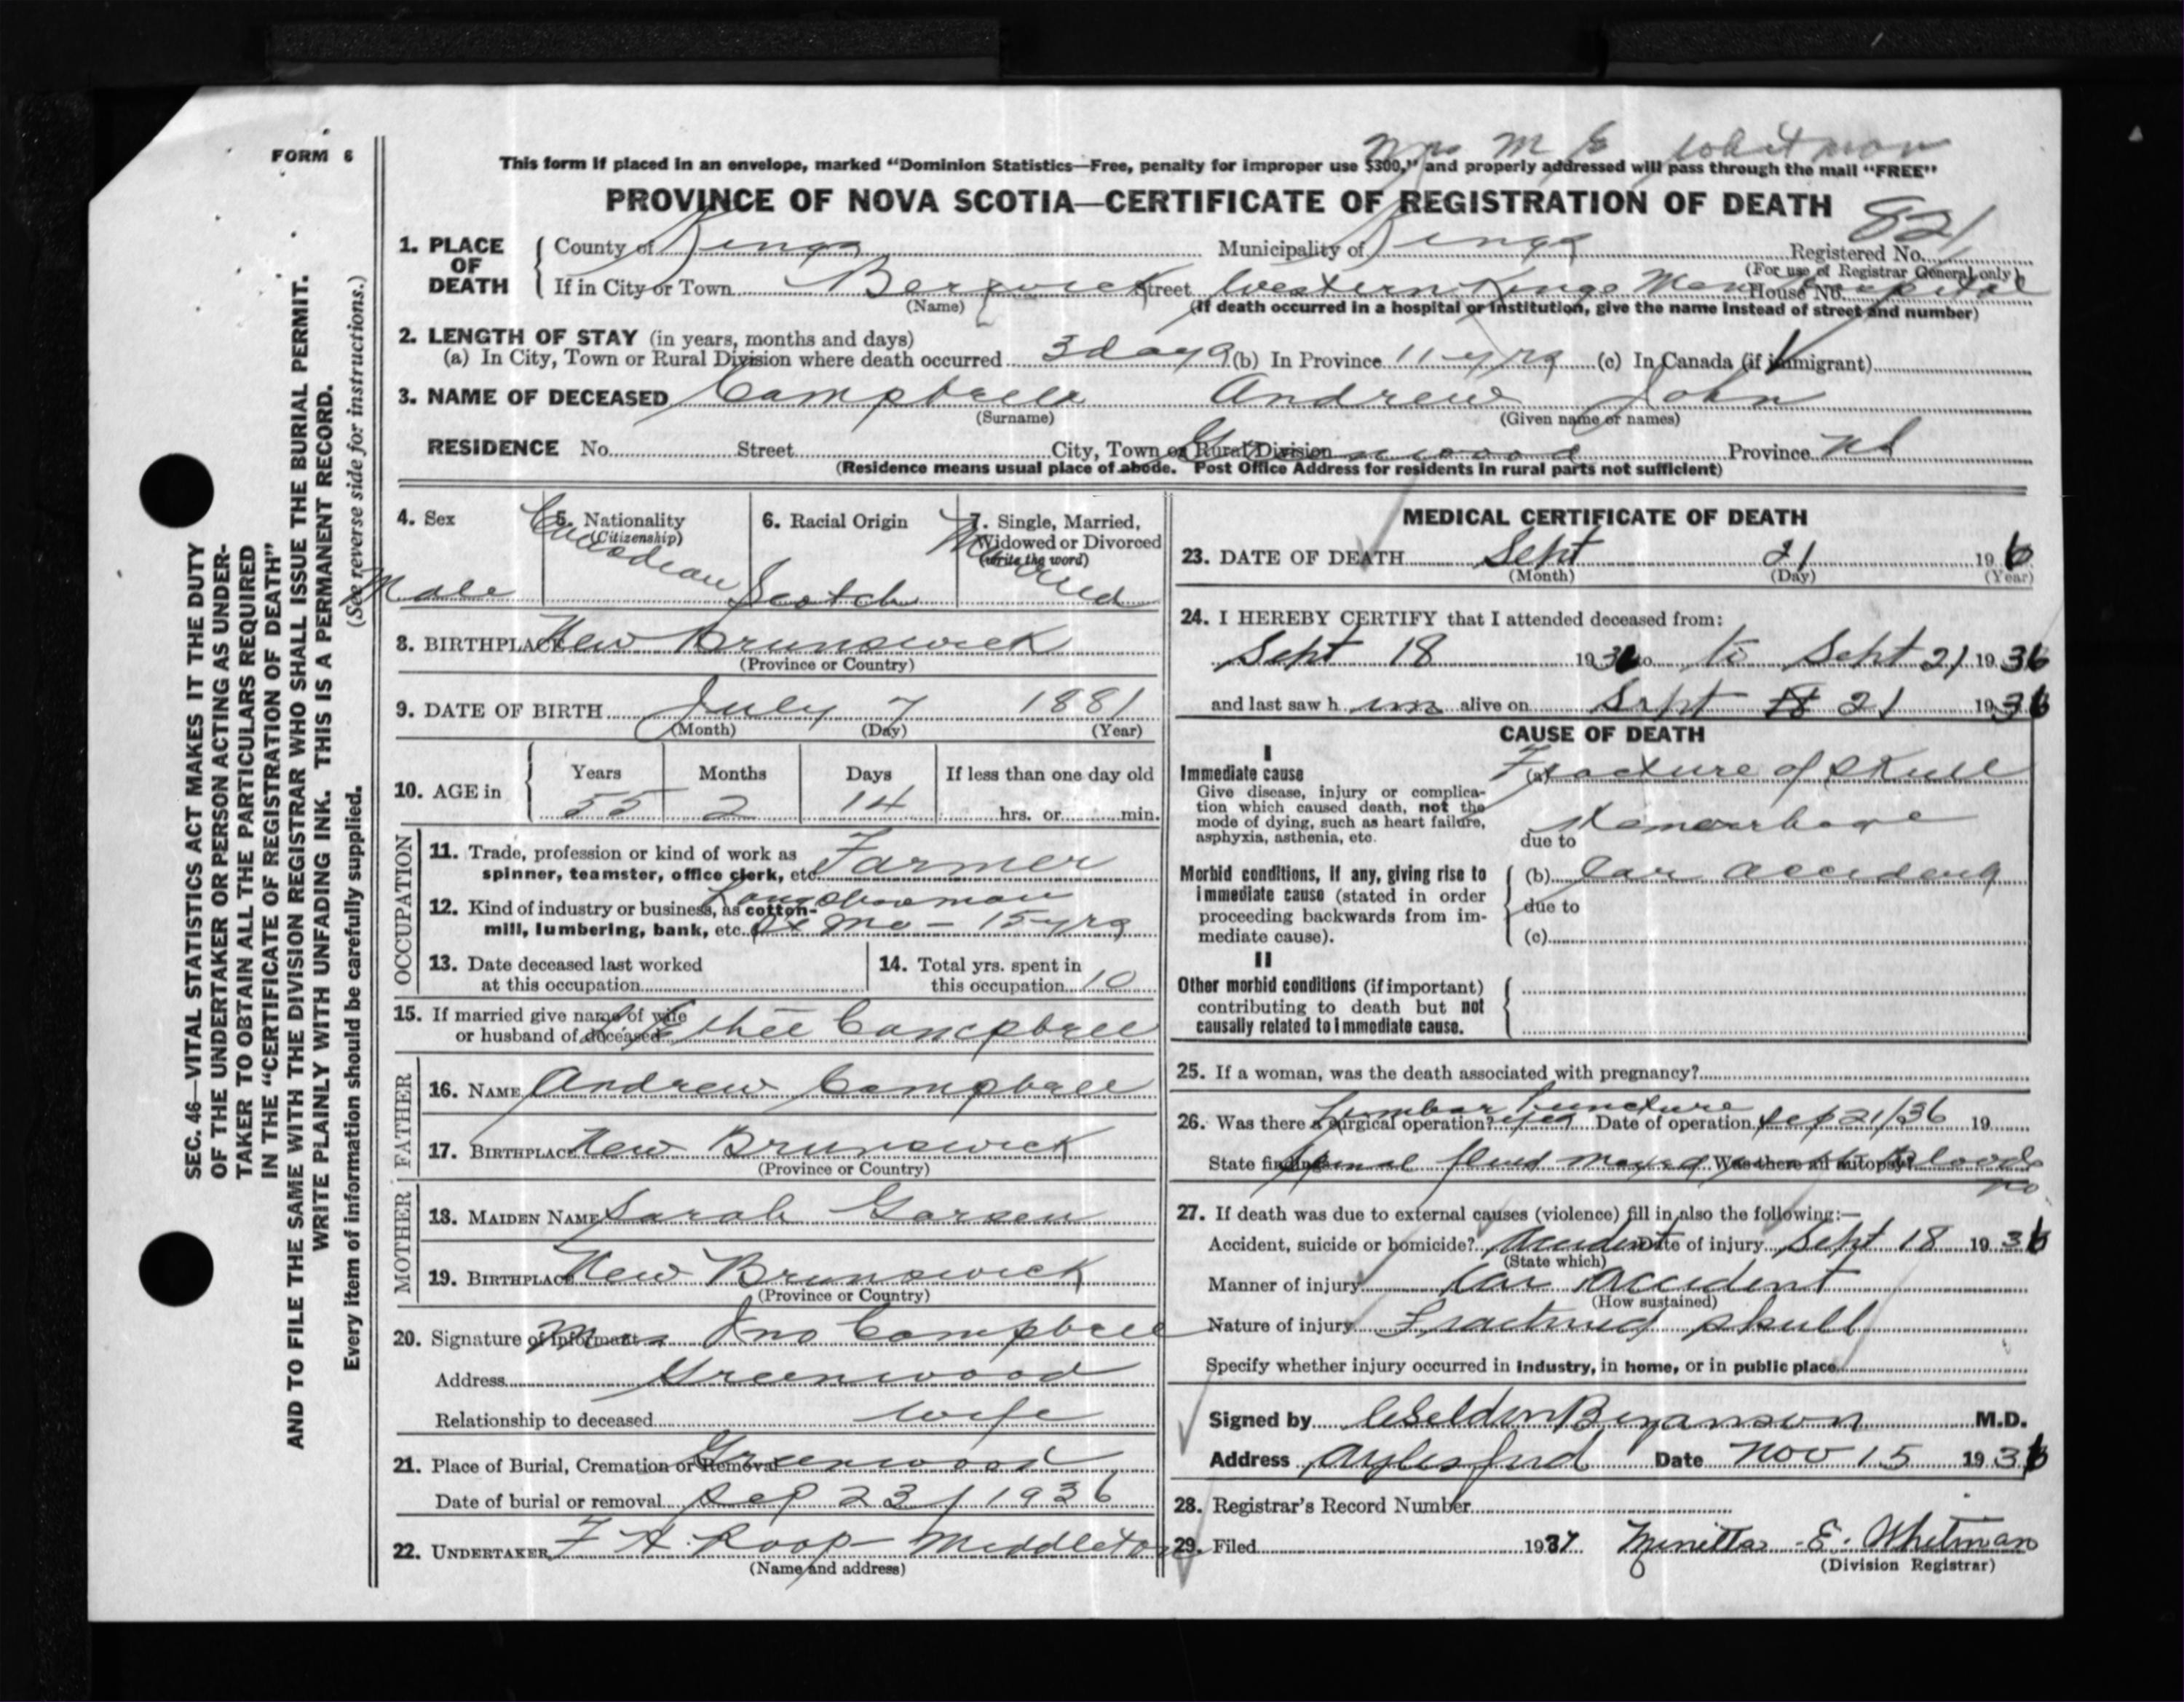 FORM 6
Mrs M E Whitman
This form if placed in an envelope, marked “Dominion Statistics—Free, penalty for improper use $300,” and properly addressed will pass through the mail “FREE”
PROVINCE OF NOVA SCOTIA—CERTIFICATE OF REGISTRATION OF DEATH
821
1. PLACE OF DEATH County of Kings Municipality of Kings Registered No.
(For use of Registrar General only)
If in City or Town Berwick Street Western Kings Mem Hospital House No.
(Name) (If death occurred in a hospital or institution, give the name instead of street and number)
2. LENGTH OF STAY (in years, months and days)
(a) In City, Town or Rural Division where death occurred 3 days (b) In Province 11 yrs (c) In Canada (if immigrant)
3. NAME OF DECEASED Campbell Andrew John
(Surname) (Given name or names)
RESIDENCE No. Street City, Town or Rural Division Greenwood Province NS
(Residence means usual place of abode. Post Office Address for residents in rural parts not sufficient)
4. Sex Male
5. Nationality (Citizenship) Canadian
6. Racial Origin Scotch
7. Single, Married, Widowed or Divorced (write the word) Married
8. BIRTHPLACE New Brunswick
(Province or Country)
9. DATE OF BIRTH July 7 1881
(Month) (Day) (Year)
10. AGE in Years Months Days If less than one day old
55 2 14 hrs. or min.
OCCUPATION
11. Trade, profession or kind of work as spinner, teamster, office clerk, etc. Farmer
12. Kind of industry or business, as cotton-mill, lumbering, bank, etc. Longshoreman 15 yrs
13. Date deceased last worked at this occupation
14. Total yrs. spent in this occupation 10
15. If married give name of wife or husband of deceased Campbell
FATHER
16. NAME Andrew Campbell
17. BIRTHPLACE New Brunswick
(Province or Country)
MOTHER
18. MAIDEN NAME Sarah
19. BIRTHPLACE New Brunswick
(Province or Country)
20. Signature of informant Mrs Jno Campbell
Address Greenwood
Relationship to deceased wife
21. Place of Burial, Cremation or Removal Greenwood
Date of burial or removal Sep 23 / 1936
22. UNDERTAKER F A Roop - Middleton
(Name and address)
MEDICAL CERTIFICATE OF DEATH
23. DATE OF DEATH Sept 21 1936
(Month) (Day) (Year)
24. I HEREBY CERTIFY that I attended deceased from:
Sept 18 1936 to to Sept 21 1936
and last saw h im alive on Sept 18 21 1936
CAUSE OF DEATH
I
Immediate cause (a) Fracture of Skull
Give disease, injury or complication which caused death, not the mode of dying, such as heart failure, asphyxia, asthenia, etc.
Hemorrhage
due to
Morbid conditions, if any, giving rise to immediate cause (stated in order proceeding backwards from immediate cause).
(b) Car accident
due to
(c)
II
Other morbid conditions (if important) contributing to death but not causally related to immediate cause.
25. If a woman, was the death associated with pregnancy?
Lumbar Puncture
26. Was there a surgical operation? yes Date of operation Sep 21/36 19
State findings Spinal fluid blood Was there an autopsy? no
27. If death was due to external causes (violence) fill in also the following:—
Accident, suicide or homicide? Accident Date of injury Sept 18 1936
(State which)
Manner of injury Car accident
(How sustained)
Nature of injury Fractured skull
Specify whether injury occurred in industry, in home, or in public place
Signed by Bezanson M.D.
Address Aylesford Date Nov 15 1936
28. Registrar's Record Number
29. Filed 1937 E. Whitman
(Division Registrar)
SEC. 46—VITAL STATISTICS ACT MAKES IT THE DUTY
OF THE UNDERTAKER OR PERSON ACTING AS UNDER-
TAKER TO OBTAIN ALL THE PARTICULARS REQUIRED
IN THE “CERTIFICATE OF REGISTRATION OF DEATH”
AND TO FILE THE SAME WITH THE DIVISION REGISTRAR WHO SHALL ISSUE THE BURIAL PERMIT.
WRITE PLAINLY WITH UNFADING INK. THIS IS A PERMANENT RECORD.
Every item of information should be carefully supplied. (See reverse side for instructions.)